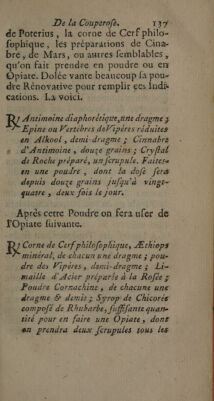 De la Couperose. 137
de Poterius, la corne de Cerf philo-
sophique, les préparations de Cina-
bre, de Mars, ou autres semblables,
qu'on fait prendre en poudre ou en
Opiate. Dolée vante beaucoup sa pou-
dre Rénovative pour remplir ces Indi-
cations. La voici.
℞ Antimoine diaphorétique, une dragme;
Epine ou Vertebres de Vipères réduites
en Alkool, demi-dragme; Cinnabre
d'Antimoine, douze grains; Crystal
de Roche préparé, un scrupule. Faites-
en une poudre, dont la dose sera
depuis douze grains jusqu'à vingt-
quatre, deux fois le jour.
Après cette Poudre on fera user de
l'Opiate suivante.
℞ Corne de Cerf philosophique, Æthiops
minéral, de chacun une dragme; pou-
dre des Vipères, demi-dragme; Li-
maille d'Acier préparée à la Rosée;
Poudre Cornachine, de chacune une
dragme & demie; Syrop de Chicorée
composé de Rhubarbe, suffisante quan-
tité pour en faire une Opiate, dont
on prendra deux scrupules tous les